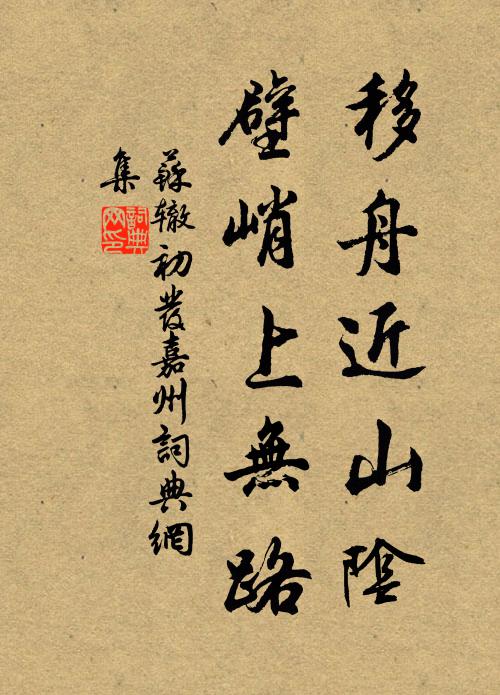 移舟近山陰
壁峭上無路
蘇辙初發嘉州詞典網
集
詞典网印